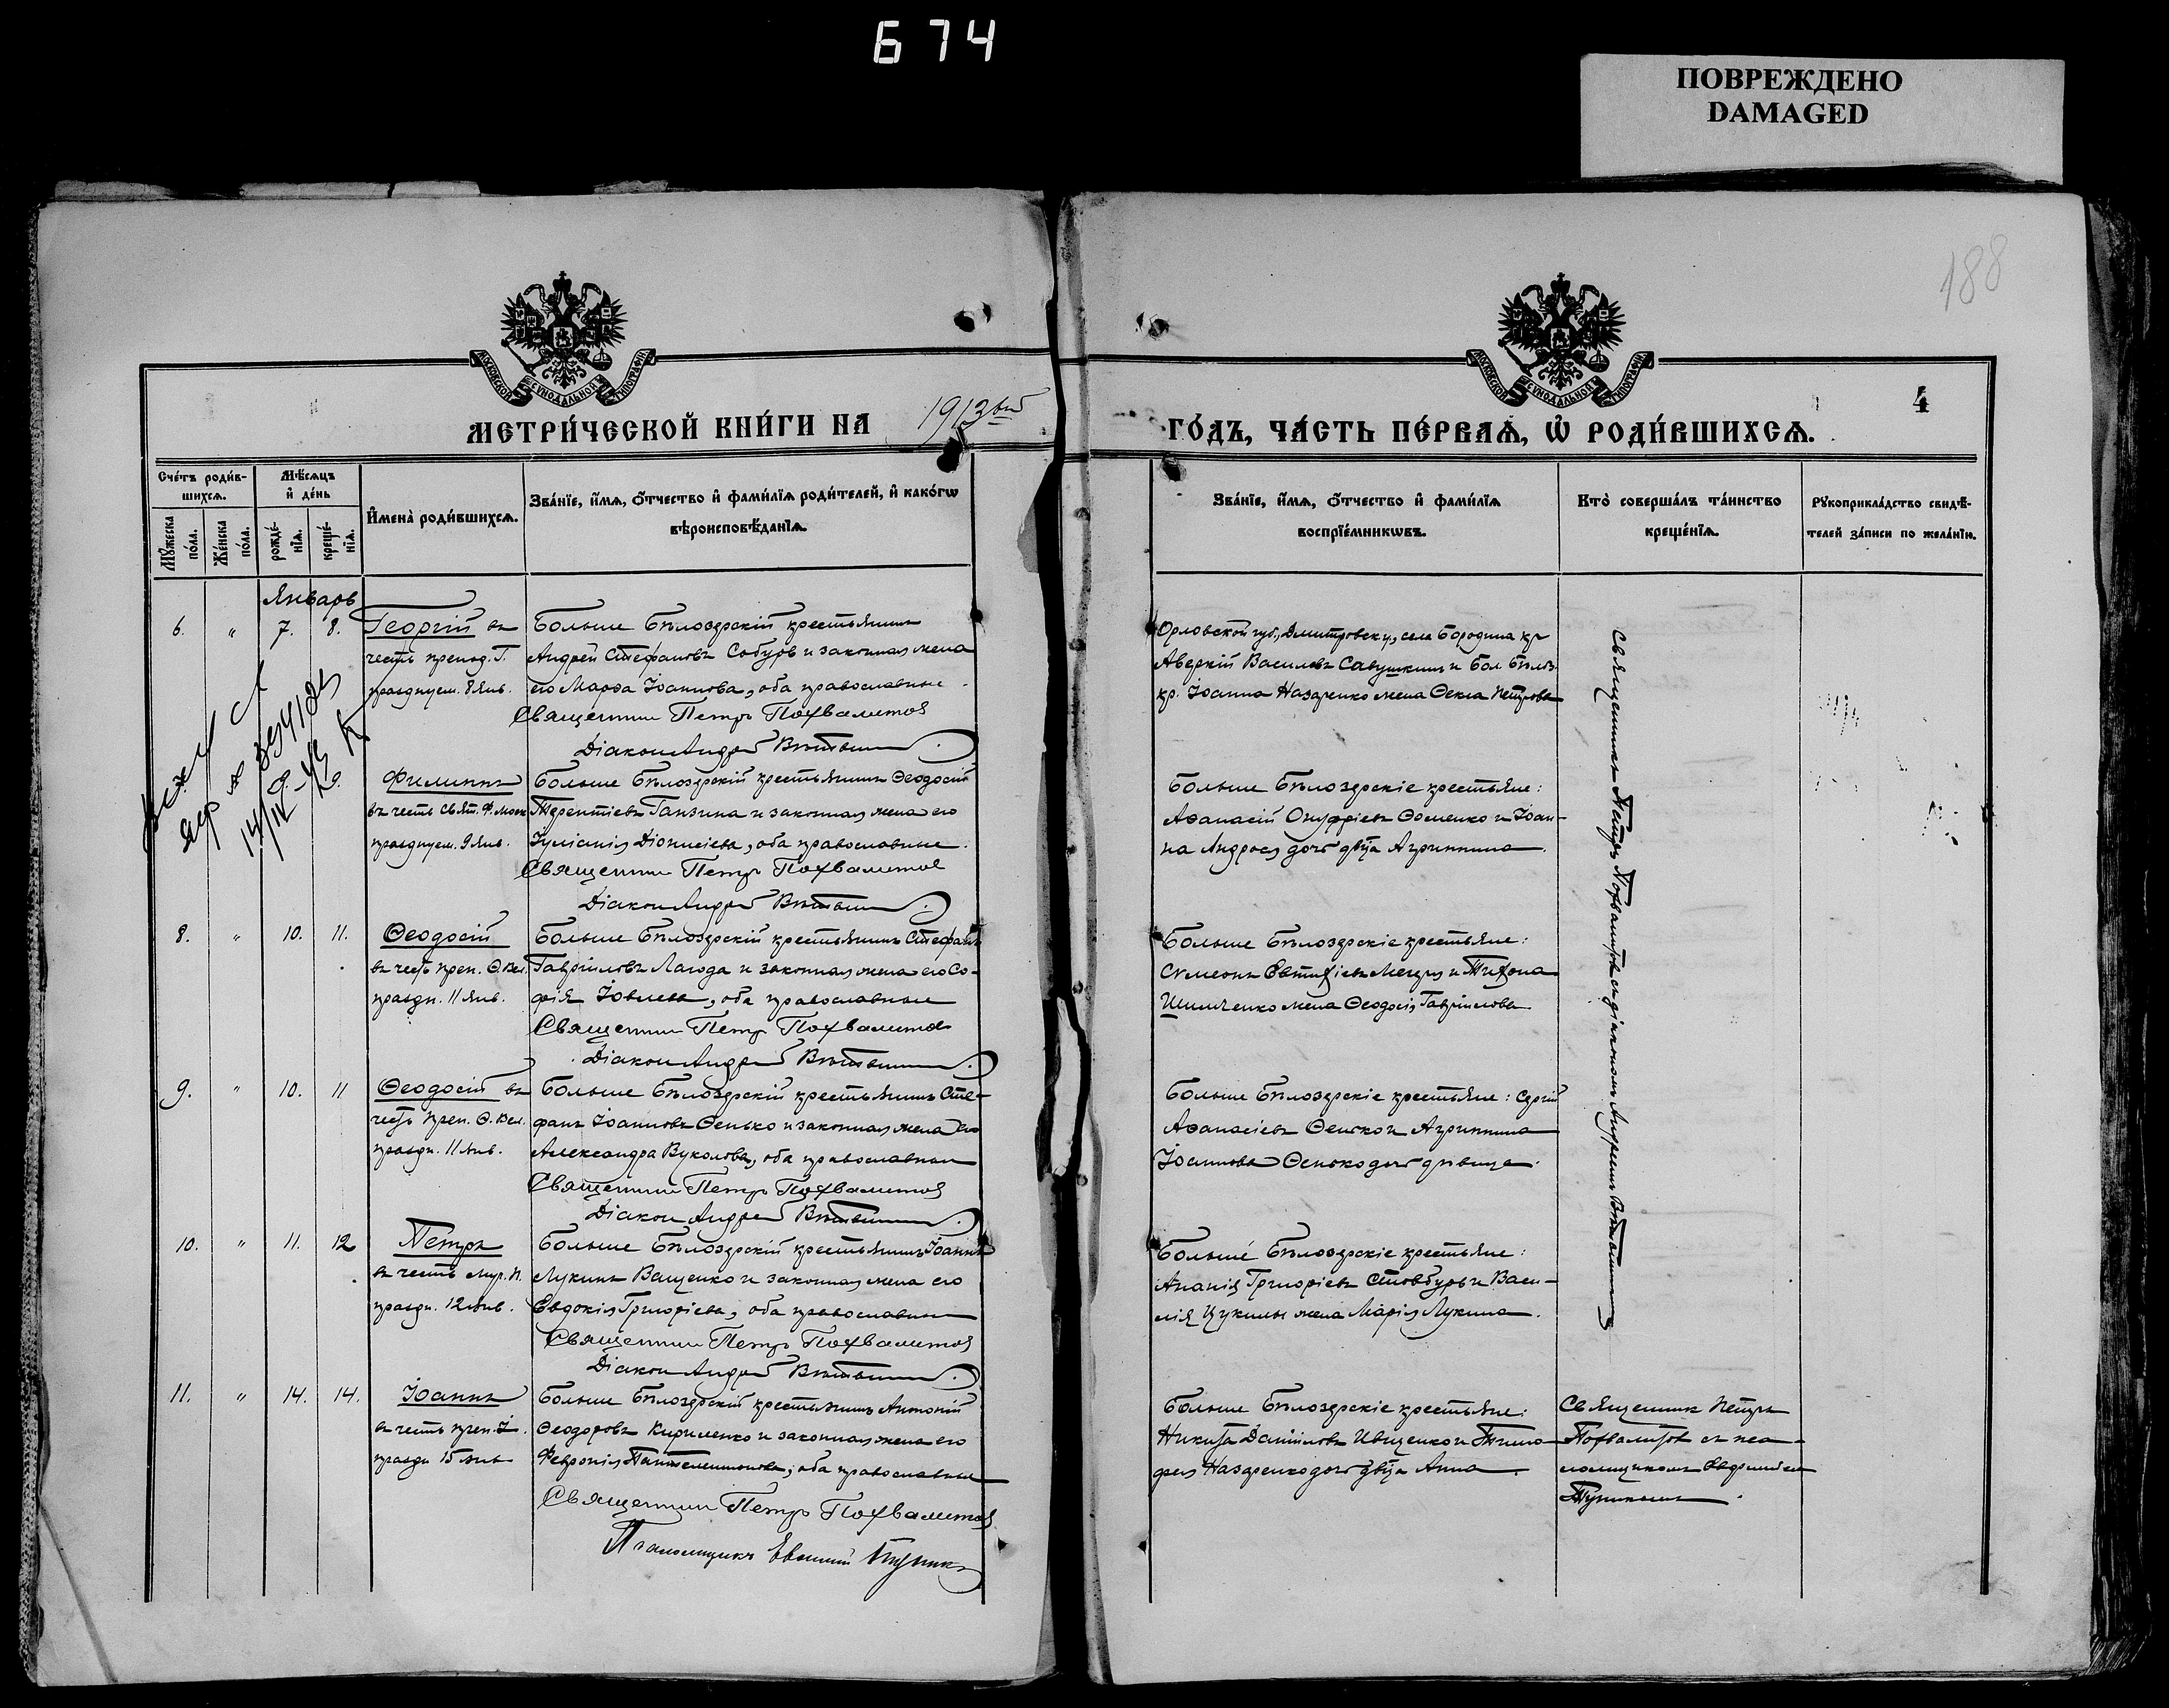 674
ПОВРЕЖДЕНО
DAMAGED
188
МОСКОВСКОЙ СѴНОДАЛЬНОЙ ТИПОГРАФІИ
МОСКОВСКОЙ СѴНОДАЛЬНОЙ ТИПОГРАФІИ
4
МЕТРИ́ЧЕСКОЙ КНИ́ГИ НА 1913ый ГО́ДЪ, ЧА́СТЬ ПЕ́РВАѦ, Ѡ РОДИ́ВШИХСѦ.
Сче́тъ роди́в-
шихсѧ.
Мѣ́сѧцъ
и де́нь
Мꙋ́жеска
по́ла.
Же́нска
по́ла.
рожде́-
нїѧ.
креще́-
нїѧ.
И҆мена̀ роди́вшихсѧ.
Зва́нїе, и҆́мѧ, ѻ҆́тчество и҆ фами́лїѧ роди́телей, и҆ како́гѡ
вѣроисповѣ́данїѧ.
Зва́нїе, и҆́мѧ, ѻ҆́тчество и҆ фами́лїѧ
воспрїе́мникѡвъ.
Кто̀ соверша́лъ та́инство
креще́нїѧ.
Рꙋкоприкла́дство свидѣ́-
телей за́писи по жела́нїю.
Январь
6. " 7. 8.
Георгій въ
честь препод. Г.
празднуем. 8 Янв.
Больше Бѣлозерскій крестьянинъ
Андрей Стефановъ Собуръ и законная жена
его Марѳа Іоаннова, оба православные.
Священник Петръ Похвалитов
Діакон Андрей
Орловской губ., Дмитровск. у., села Бородина кр.
Аверкій Васильевъ Савушкинъ и Бол. Бѣлоз.
кр. Іоанна Назаренко жена Ѳекла Петрова
Священникъ Петръ Похвалитовъ съ діакономъ Андреемъ
Филиппъ
въ честь Свят. Ф. Моск.
празднуем. 9 Янв.
Больше Бѣлозерскій крестьянинъ Ѳеодосій
Терентіевъ Ганзина и законная жена его
Іуліанія Діонисіева, оба православные.
Священник Петръ Похвалитов
Діакон Андрей
Больше Бѣлозерскіе крестьяне:
Аѳанасій Онуфріевъ Ѳоменко и Іоан-
на Андроса дочь двца Агриппина.
8. " 10. 11.
Ѳеодосій
въ честь преп. Ѳ. Вел.
праздн. 11 Янв.
Больше Бѣлозерскій крестьянинъ Стефанъ
Гавріиловъ Лагода и законная жена его Со-
фія Іовлева, оба православные
Священник Петръ Похвалитов
Діакон Андрей
Больше Бѣлозерскіе крестьяне:
Сѵмеонъ Евтихіевъ и Тихона
Шимченко жена Ѳеодосія Гавріилова
9. " 10. 11
Ѳеодосій въ
честь преп. Ѳ. Вел.
праздн. 11 Янв.
Больше Бѣлозерскій крестьянинъ Сте-
фанъ Іоанновъ Ѳенько и законная жена его
Александра Вуколова, оба православные
Священник Петръ Похвалитов
Діакон Андрей
Больше Бѣлозерскіе крестьяне: Сергій
Аѳанасіевъ Ѳенько и Агриппина
Іоаннова Ѳенько дочь дѣвица.
10. " 11. 12
Петръ
въ честь муч. П.
праздн. 12 Янв.
Больше Бѣлозерскій крестьянинъ Іоаннъ
Лукинъ Ващенко и законная жена его
Евдокія Григоріева, оба православные
Священник Петръ Похвалитов
Діакон Андрей
Больше Бѣлозерскіе крестьяне:
Ананія Григоріевъ Стовбуръ и Васи-
лія Цукилы жена Марія Лукина.
11. " 14. 14.
Іоаннъ
въ честь преп. І.
праздн. 15 Янв
Больше Бѣлозерскій крестьянинъ Антоній
Ѳеодоровъ Кириленко и законная жена его
Февронія Пантелеимонова, оба православные
Священник Петръ Похвалитов
Псаломщикъ Евѳимій
Больше Бѣлозерскіе крестьяне:
Никита Даніиловъ Иващенко и Тимо-
фея Назаренко дочь двца Анна.
Священникъ Петръ
Похвалитовъ съ пса-
ломщикомъ